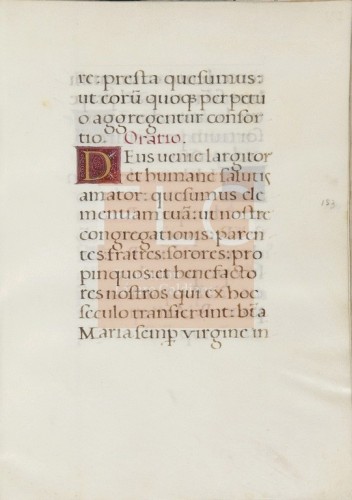 re: presta quesumus:
ut eorū quoqȝ perpetu
o aggregentur consor
tio. Oratio.
DEus uenie largitor
et humane salutis
amator: quesumus cle
mentiam tuā: ut nostre
congregationis: paren
tes fratres: sorores: pro
pinquos: et benefacto
res nostros qui ex hoc
seculo transierunt: bt̄a
Maria semp̱ virgine in
183